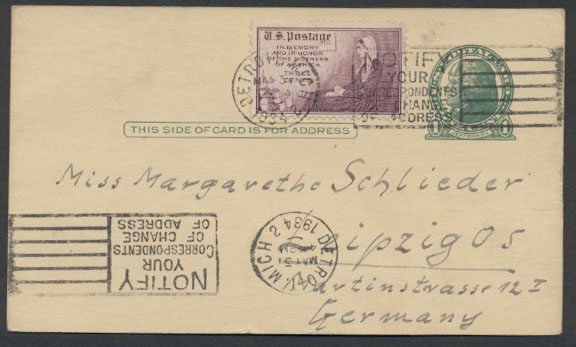 U.S. Postage
IN MEMORY
AND IN HONOR
OF THE MOTHERS
OF AMERICA
THREE
CENTS
DETROIT MICH 2
1934
NOTIFY
YOUR
CORRESPONDENTS
CHANGE
OF ADDRESS
THIS SIDE OF CARD IS FOR ADDRESS
Miss Margarethe Schlieder
Leipzig O5
Martinstrasse 12 I
Germany
DETROIT MICH 2
MAY 31
1934
NOTIFY
YOUR
CORRESPONDENTS
OF CHANGE
OF ADDRESS